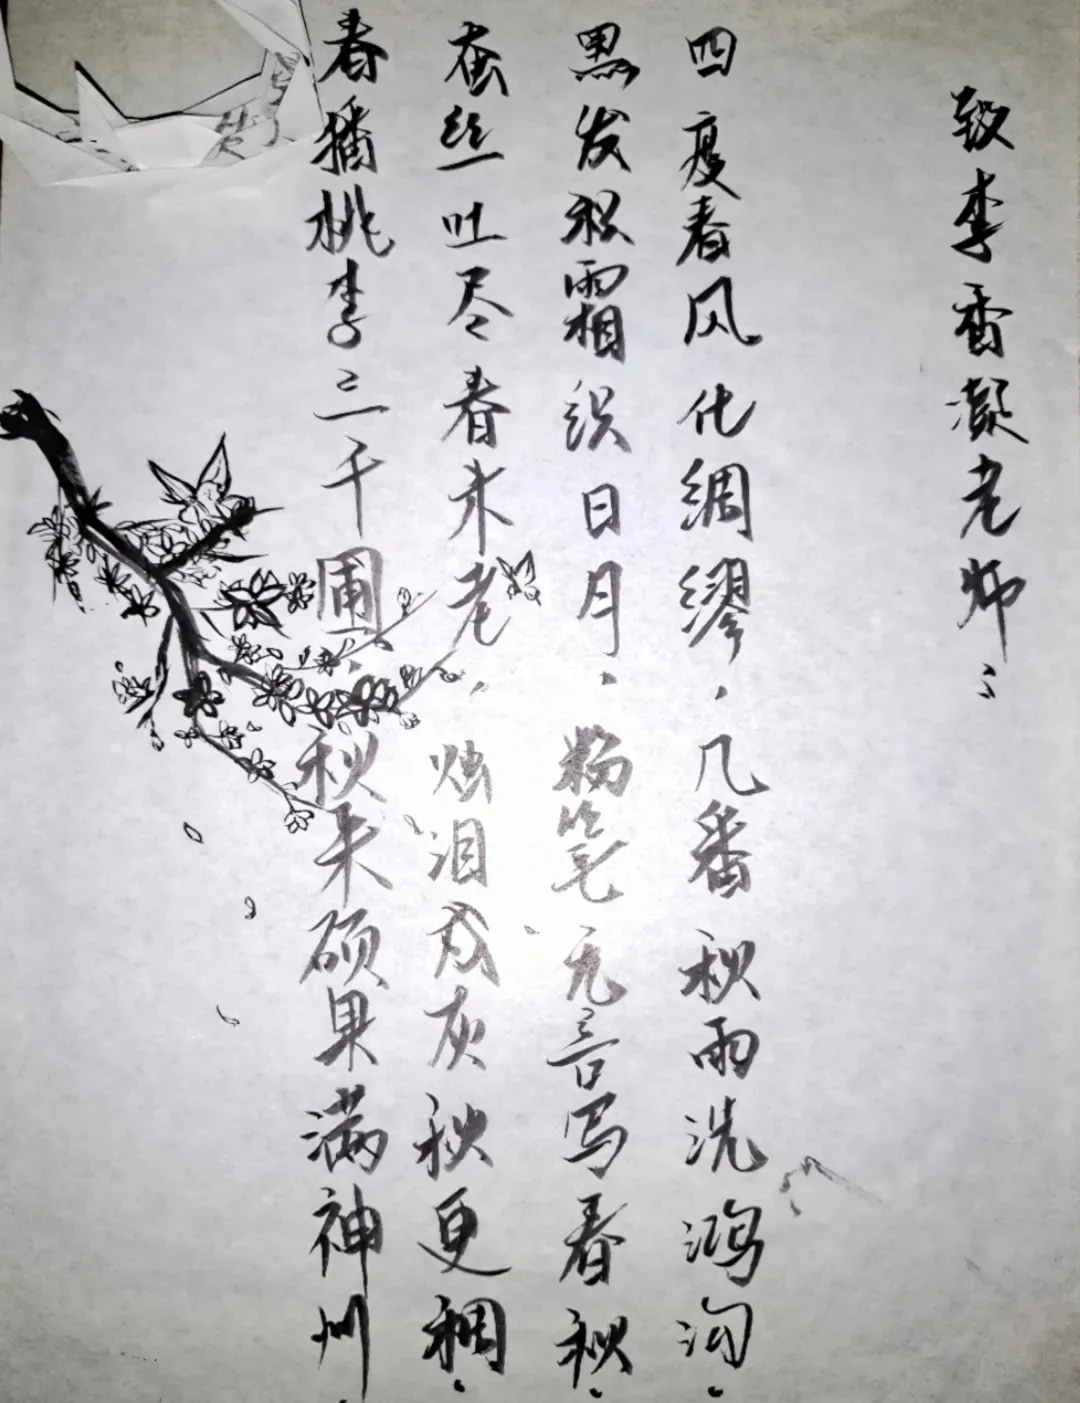 致李香凝老师：
四度春风化绸缪，几番秋雨洗鸿沟。
黑发积霜织日月、粉笔无言写春秋。
蚕丝吐尽春未老，烛泪成灰秋更稠。
春播桃李三千圃、秋来硕果满神州。